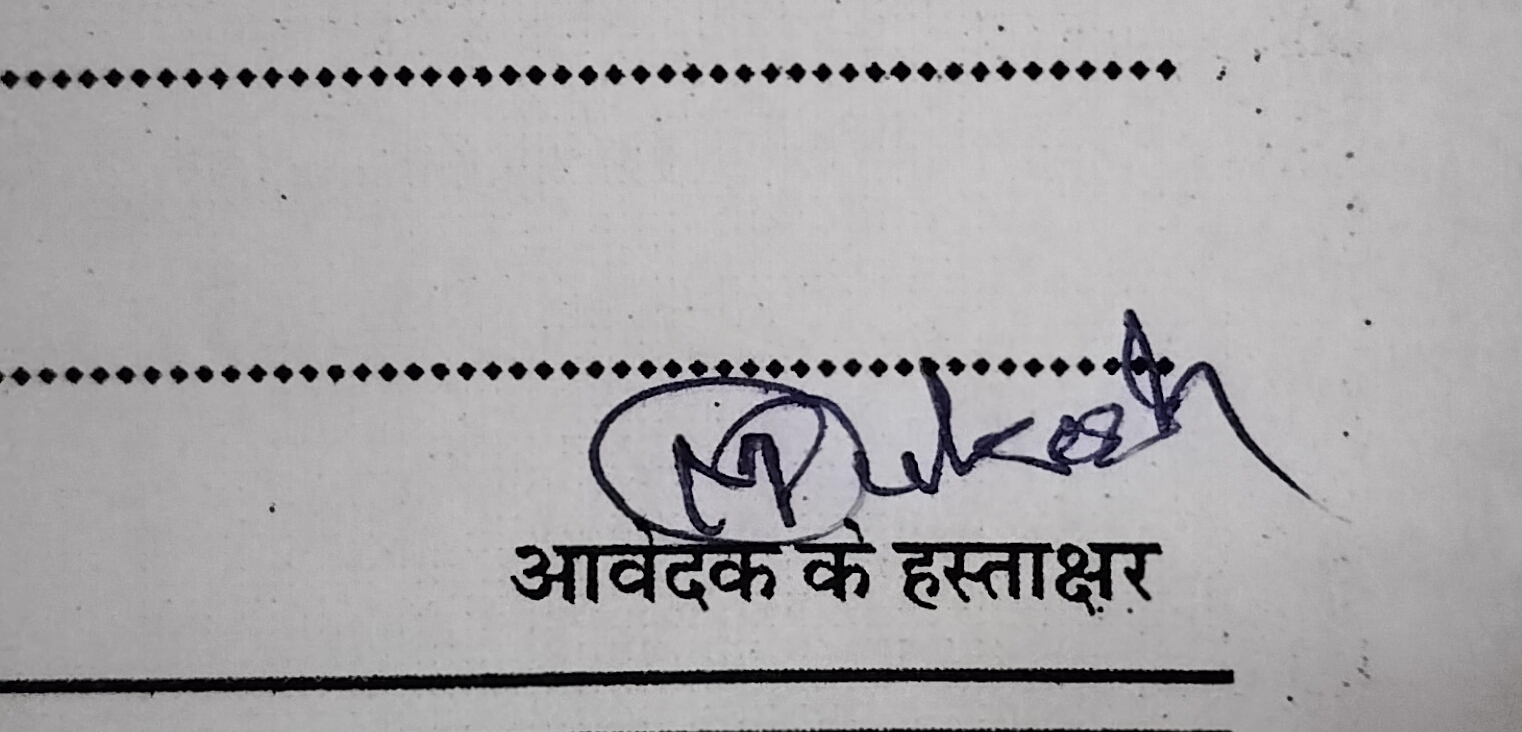 Mukesh
आवेदक के हस्ताक्षर